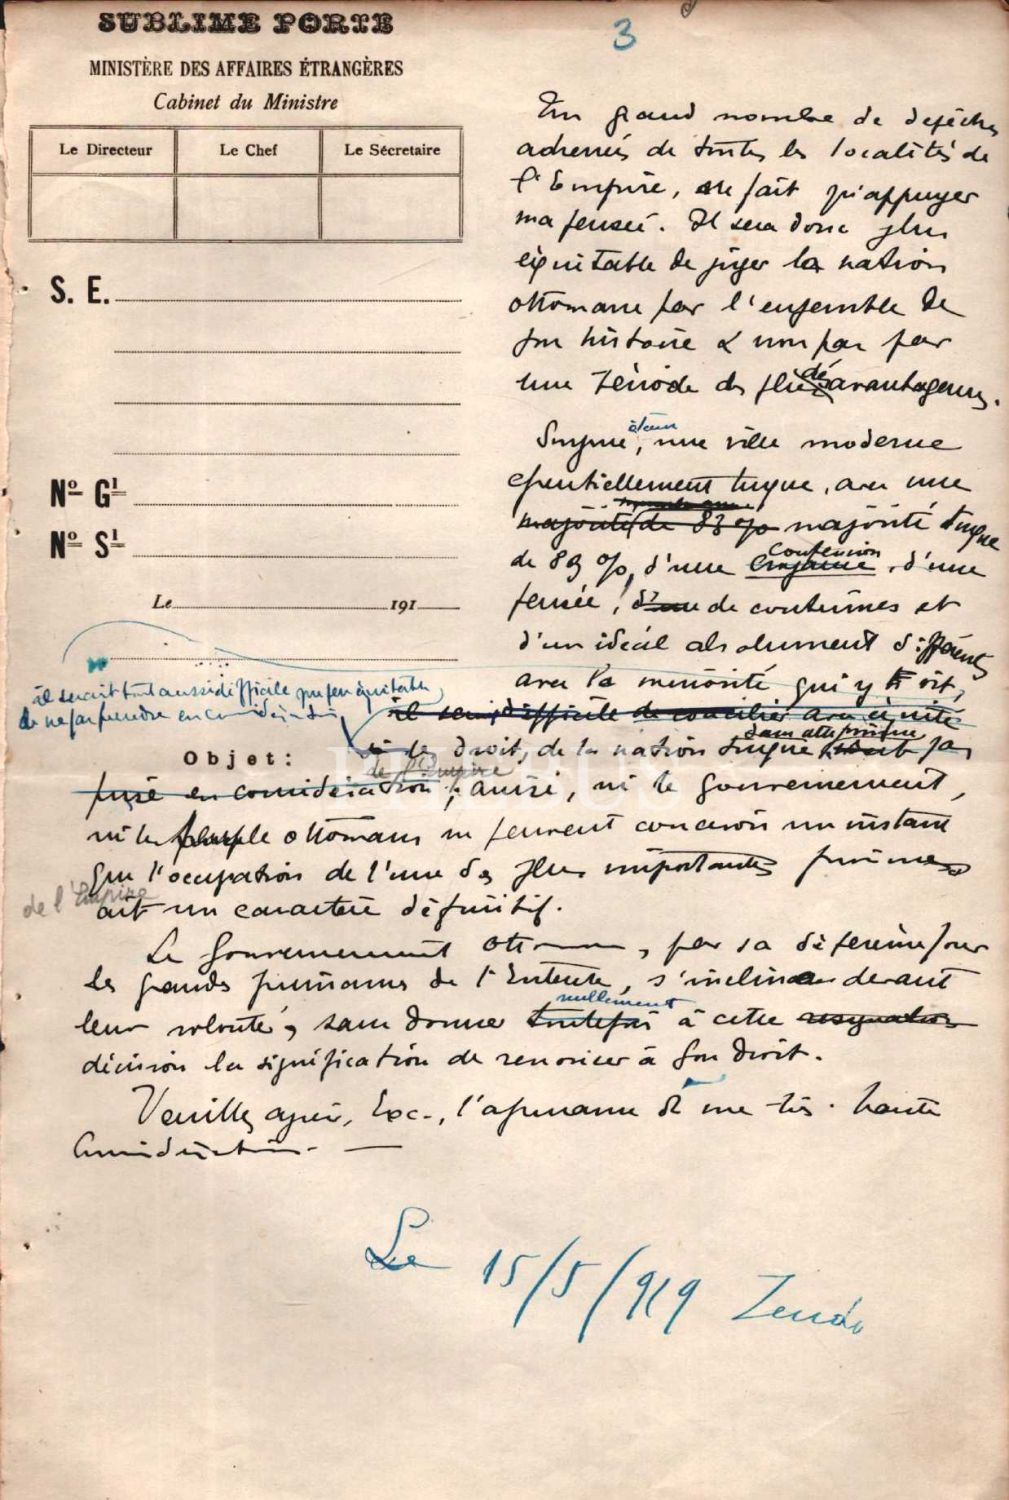 SUBLIME PORTE
MINISTÈRE DES AFFAIRES ÉTRANGÈRES
Cabinet du Ministre
Le Directeur Le Chef Le Sécretaire
S. E.
Nº Gˡ
Nº Sˡ
Le 191
Objet:
3
Un grand nombre de depêches
adressées de toutes les localités de
l'Empire, ne fait qu'appuyer
ma pensée. Il sera donc plus
équitable de juger la nation
ottomane par l'ensemble de
son histoire & non pas par
une période des plus désavantageuses.
Smyrne, étant, une ville moderne
essentiellement turque, avec une
majorité de 83 % majorité turque
de 83 %, d'une confession, d'une
pensée, d'une de coutumes et
d'un idéal absolument différents
avec la minorité qui y vit,
il serait tout aussi difficile que peu équitable
de ne pas prendre en considération
il serait difficile de concilier avec équité
le droit, de la nation turque dans cette province
de l'Empire
prise en considération; aussi, ni le gouvernement,
ni le peuple ottomans ne peuvent concevoir un instant
que l'occupation de l'une des plus importantes provinces
de l'Empire
ait un caractère définitif.
Le Gouvernement Ottoman, par sa déférence pour
les grandes puissances de l'Entente, s'incline devant
leur volonté, sans donner toutefois nullement à cette resignation
décision la signification de renoncer à son droit.
Veuillez agréer, Exc., l'assurance de ma très haute
Considération.
Le 15/5/919